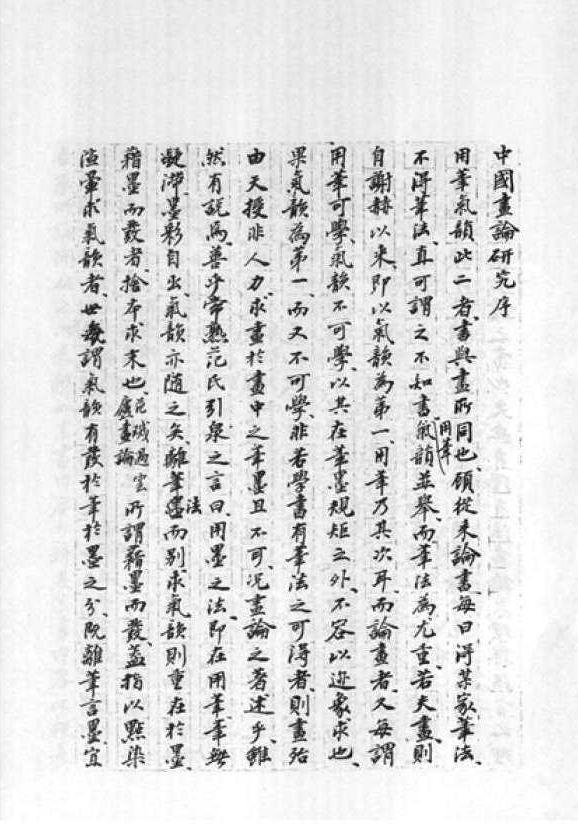 中國畫論研究序
用筆氣韻此二者書與畫所同也顧從來論書每曰得某家筆法
不得筆法直可謂之不知書氣韻用筆並舉而筆法為尤重若夫畫則
自謝赫以來即以氣韻為第一用筆乃其次耳而論畫者又每謂
用筆可學氣韻不可學以其在筆墨規矩之外不容以迹象求也
果氣韻為第一而又不可學非若學書有筆法之可得者則畫殆
由天授非人力求畫於畫中之筆墨且不可况畫論之著述乎雖
然有說焉善乎常熟范氏引泉之言曰用墨之法即在用筆筆無
凝滯墨彩自出氣韻亦隨之矣離筆法墨而別求氣韻則重在於墨
藉墨而發者捨本求末也范璣過雲廬畫論所謂藉墨而發蓋指以點染
渲暈求氣韻者世每謂氣韻有發於筆於墨之分既離筆言墨宜